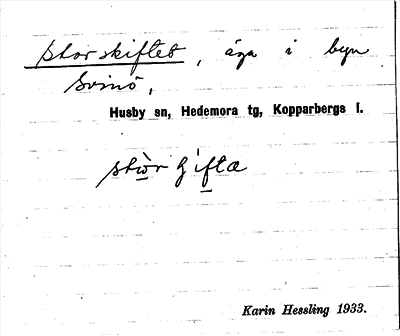 Storskiftet, äga i byn
Svinö,
Husby sn, Hedemora tg, Kopparbergs l.
Karin Hessling 1933.